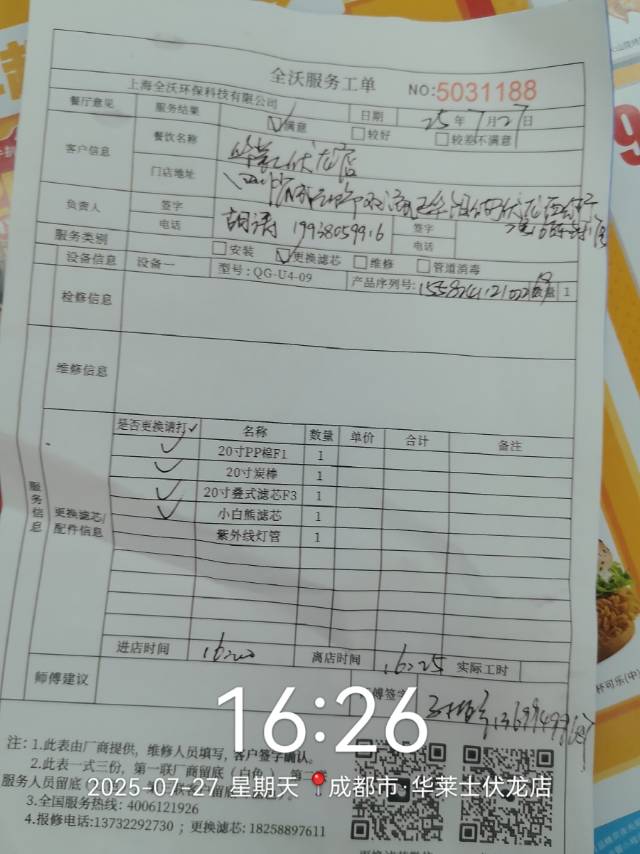 全沃服务工单
NO:5031188
上海全沃环保科技有限公司
餐厅意见 服务结果 日期 25年7月27日
✓满意 □较好 □较差不满意
客户信息 餐饮名称 华莱士伏龙店
门店地址
负责人 签字 胡涛 签字
电话 19938059916 电话
服务类别 □安装 ✓更换滤芯 □维修 □管道消毒
设备信息 设备一 型号:QG-U4-09 产品序列号: 数量 1
检修信息
维修信息
服务信息
更换滤芯/配件信息
是否更换请打✓ 名称 数量 单价 合计 备注
✓ 20寸PP棉F1 1
✓ 20寸炭棒 1
✓ 20寸叠式滤芯F3 1
✓ 小白熊滤芯 1
紫外线灯管 1
进店时间 16:20 离店时间 16:25 实际工时
师傅建议 师傅签字
16:26
注:1.此表由厂商提供,维修人员填写,客户签字确认。
2.此表一式三份,第一联厂商留底(白色)
服务人员留底
2025-07-27 星期天 成都市·华莱士伏龙店
3.全国服务热线:4006121926
4.报修电话:13732292730;更换滤芯:18258897611